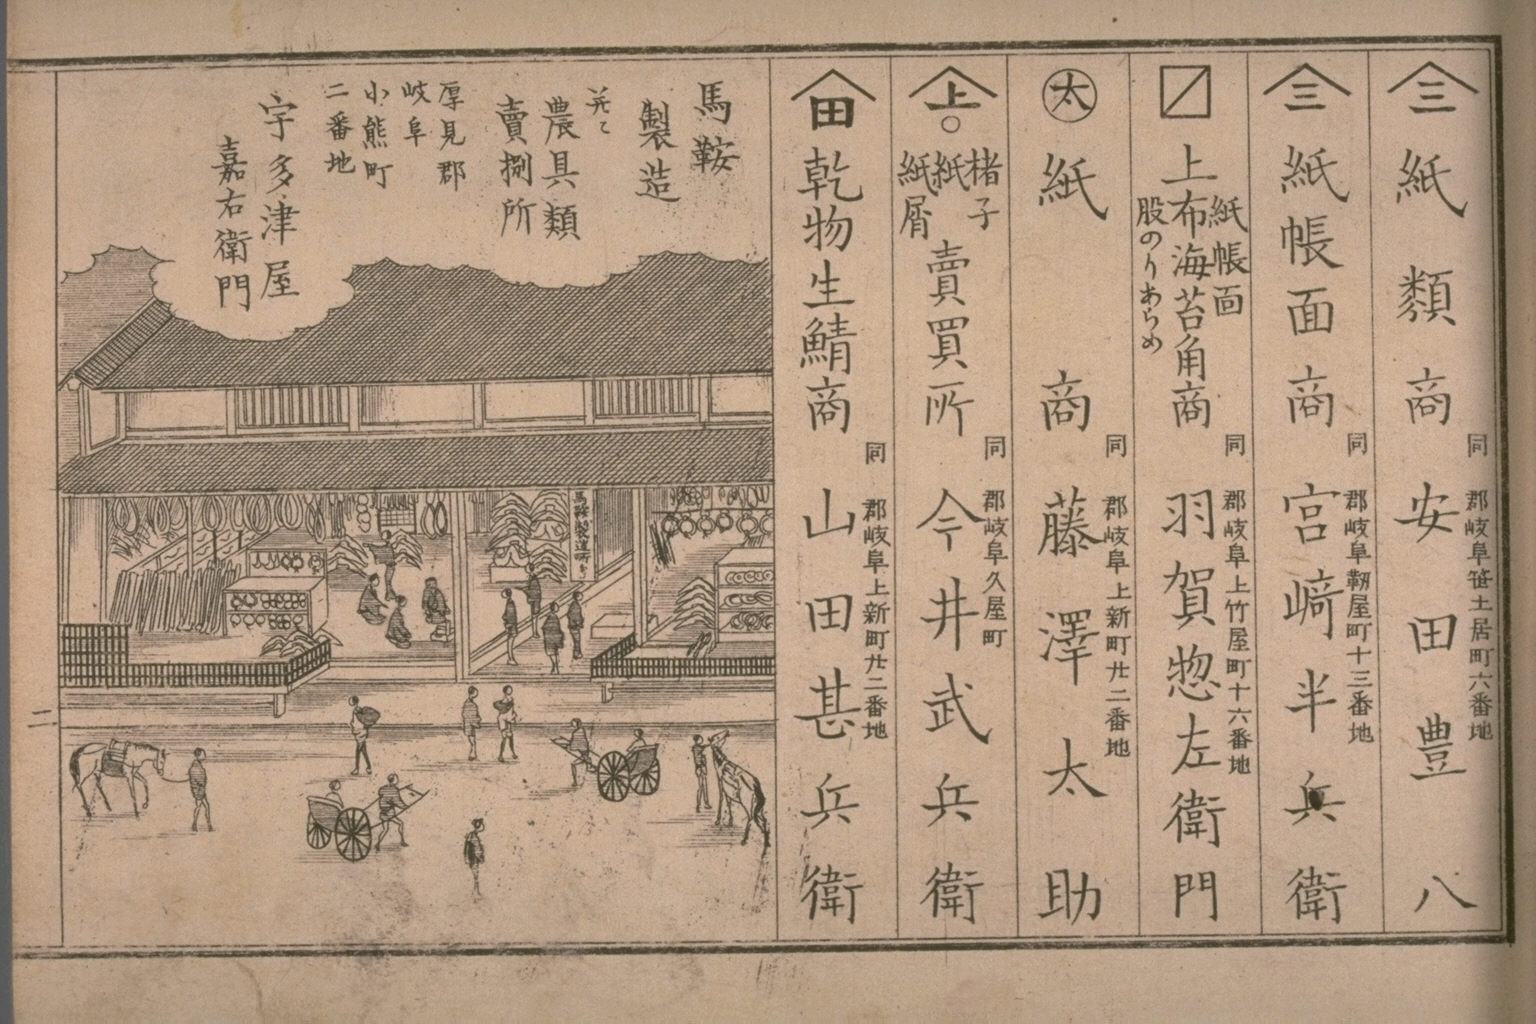 三
紙類商
同
郡岐阜笹土居町六番地
安田豊八
三
紙帳面商
同
郡岐阜靭屋町十三番地
宮﨑半兵衛
紙帳面
上布海苔角商
股のりあらめ
同
郡岐阜上竹屋町十六番地
羽賀惣左衛門
太
紙商
同
郡岐阜上新町廿二番地
藤澤太助
上
楮子
紙
紙屑
賣買所
同
郡岐阜久屋町
今井武兵衛
田
乾物生鯖商
同
郡岐阜上新町廿二番地
山田甚兵衛
馬鞍
製造
并ニ
農具類
賣捌所
厚見郡
岐阜
小熊町
二番地
宇多津屋
嘉右衛門
馬鞍製造所